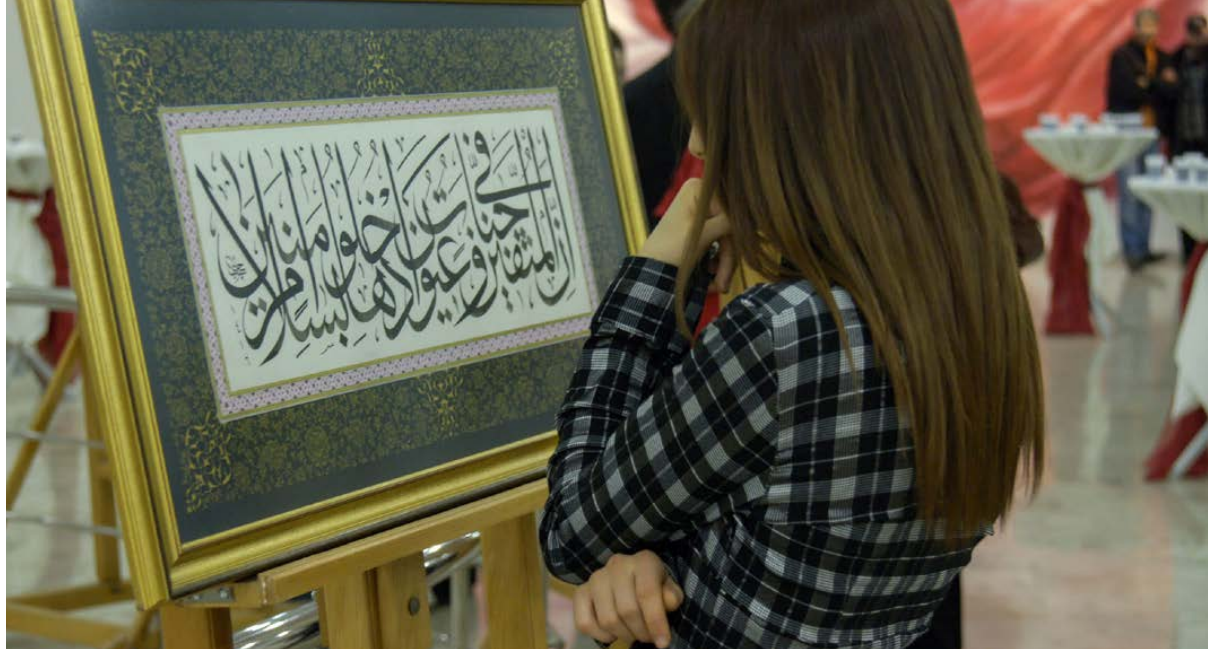 إِنَّ الْمُتَّقِينَ فِي جَنَّاتٍ وَعُيُونٍ ادْخُلُوهَا بِسَلَامٍ آمِنِينَ